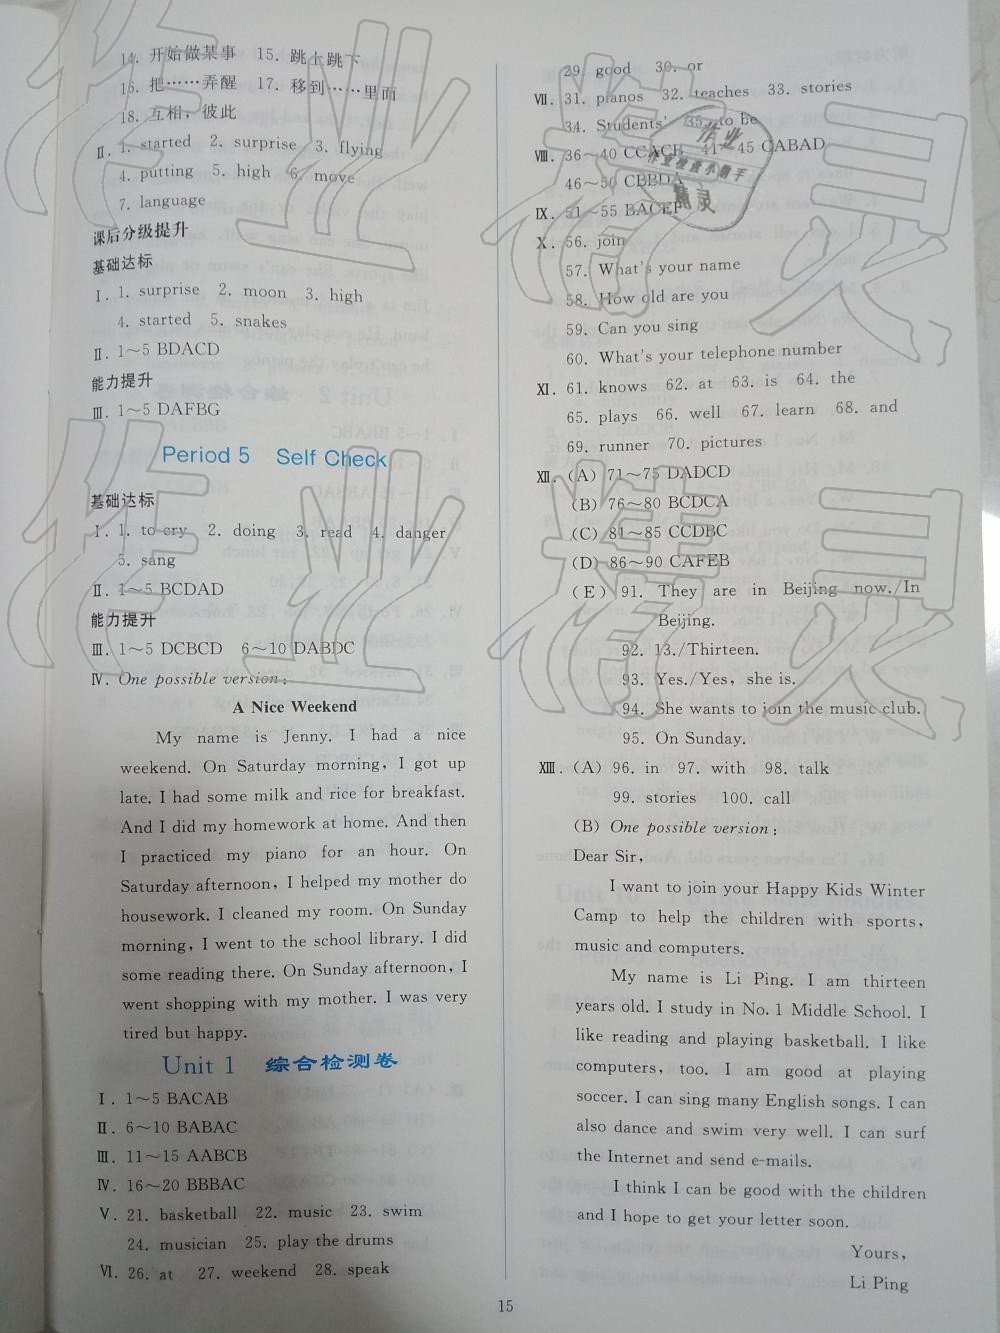 14. 开始做某事 15. 跳上跳下
16. 把……弄醒 17. 移到……里面
18. 互相，彼此
Ⅱ. 1. started 2. surprise 3. flying
4. putting 5. high 6. move
7. language
课后分级提升
基础达标
Ⅰ. 1. surprise 2. moon 3. high
4. started 5. snakes
Ⅱ. 1～5 BDACD
能力提升
Ⅲ. 1～5 DAFBG
Period 5 Self Check
基础达标
Ⅰ. 1. to cry 2. doing 3. read 4. danger
5. sang
Ⅱ. 1～5 BCDAD
能力提升
Ⅲ. 1～5 DCBCD 6～10 DABDC
Ⅳ. One possible version:
A Nice Weekend
My name is Jenny. I had a nice
weekend. On Saturday morning, I got up
late. I had some milk and rice for breakfast.
And I did my homework at home. And then
I practiced my piano for an hour. On
Saturday afternoon, I helped my mother do
housework. I cleaned my room. On Sunday
morning, I went to the school library. I did
some reading there. On Sunday afternoon, I
went shopping with my mother. I was very
tired but happy.
Unit 1 综合检测卷
Ⅰ. 1～5 BACAB
Ⅱ. 6～10 BABAC
Ⅲ. 11～15 AABCB
Ⅳ. 16～20 BBBAC
Ⅴ. 21. basketball 22. music 23. swim
24. musician 25. play the drums
Ⅵ. 26. at 27. weekend 28. speak
29. good 30. or
Ⅶ. 31. pianos 32. teaches 33. stories
34. Students' 35. to be
Ⅷ. 36～40 CCACB 41～45 CABAD
46～50 CBBDA
Ⅸ. 51～55 BACEF
Ⅹ. 56. join
57. What's your name
58. How old are you
59. Can you sing
60. What's your telephone number
Ⅺ. 61. knows 62. at 63. is 64. the
65. plays 66. well 67. learn 68. and
69. runner 70. pictures
Ⅻ. (A) 71～75 DADCD
(B) 76～80 BCDCA
(C) 81～85 CCDBC
(D) 86～90 CAFEB
(E) 91. They are in Beijing now./In
Beijing.
92. 13./Thirteen.
93. Yes./Yes, she is.
94. She wants to join the music club.
95. On Sunday.
ⅩⅢ. (A) 96. in 97. with 98. talk
99. stories 100. call
(B) One possible version:
Dear Sir,
I want to join your Happy Kids Winter
Camp to help the children with sports,
music and computers.
My name is Li Ping. I am thirteen
years old. I study in No. 1 Middle School. I
like reading and playing basketball. I like
computers, too. I am good at playing
soccer. I can sing many English songs. I can
also dance and swim very well. I can surf
the Internet and send e-mails.
I think I can be good with the children
and I hope to get your letter soon.
Yours,
Li Ping
15
作业
作业检查小帮手
精灵